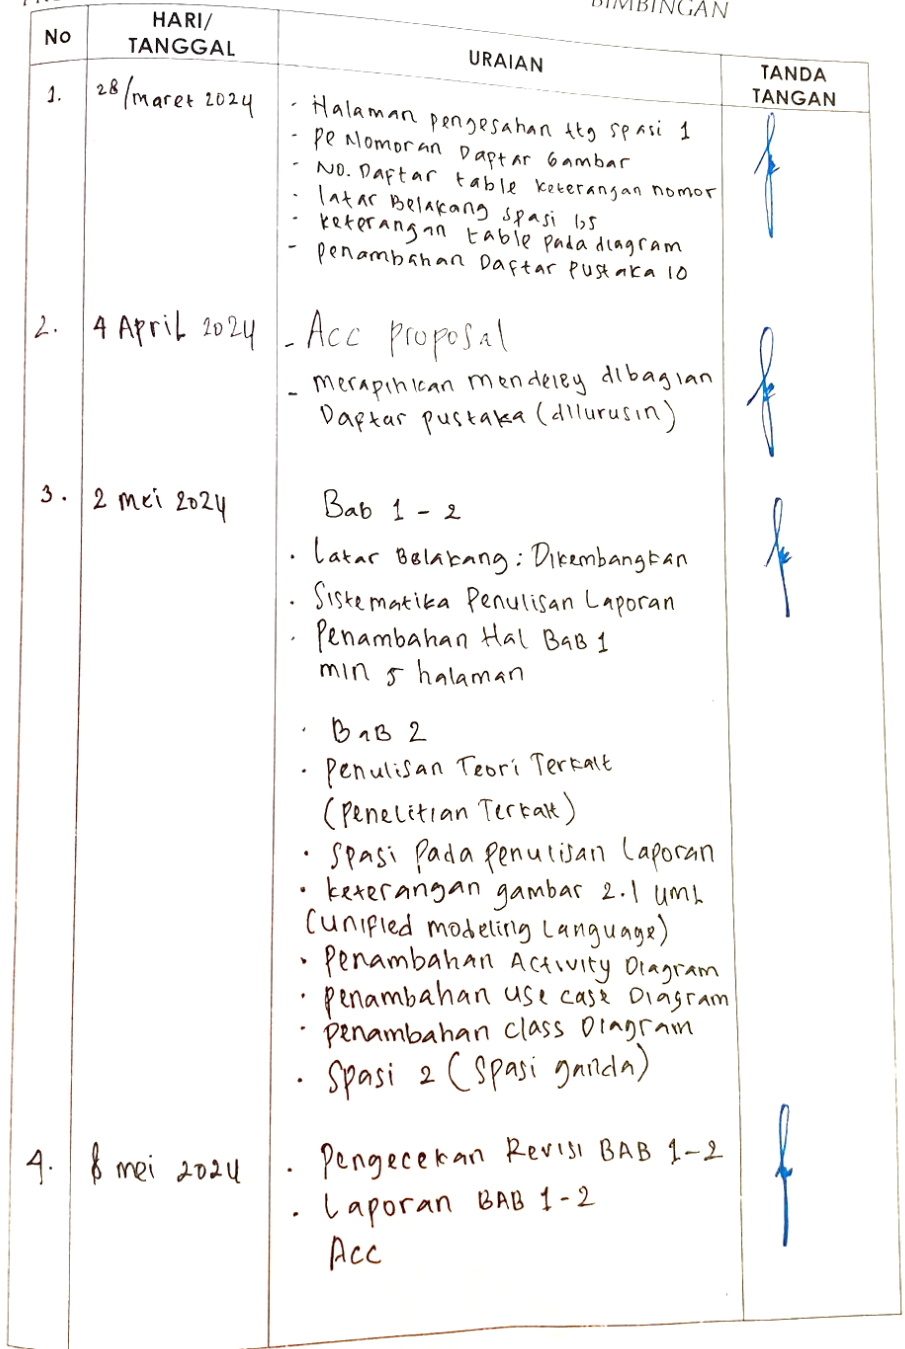 BIMBINGAN
No
HARI/
TANGGAL
URAIAN
TANDA
TANGAN
1.
28/maret 2024
- Halaman pengesahan ttg spasi 1
- PeNomoran Daptar Gambar
- No. Daftar table keterangan nomor
- latar Belakang spasi 1,5
- keterangan table pada diagram
- penambahan Daftar Pustaka 10
2.
4 April 2024
- Acc proposal
- merapihkan mendeley dibagian
Daftar pustaka (dilurusin)
3.
2 mei 2024
Bab 1 - 2
· Latar Belakang : Dikembangkan
· Sistematika Penulisan Laporan
· Penambahan Hal BaB 1
min 5 halaman
· BaB 2
· Penulisan Teori Terkait
(Penelitian Terkait)
· Spasi Pada Penulisan Laporan
· keterangan gambar 2.1 UML
(unified modeling Language)
· Penambahan Activity Diagram
· penambahan use case Diagram
· penambahan class Diagram
· Spasi 2 (Spasi ganda)
4.
8 mei 2024
· Pengecekan Revisi BAB 1-2
· Laporan BAB 1-2
Acc